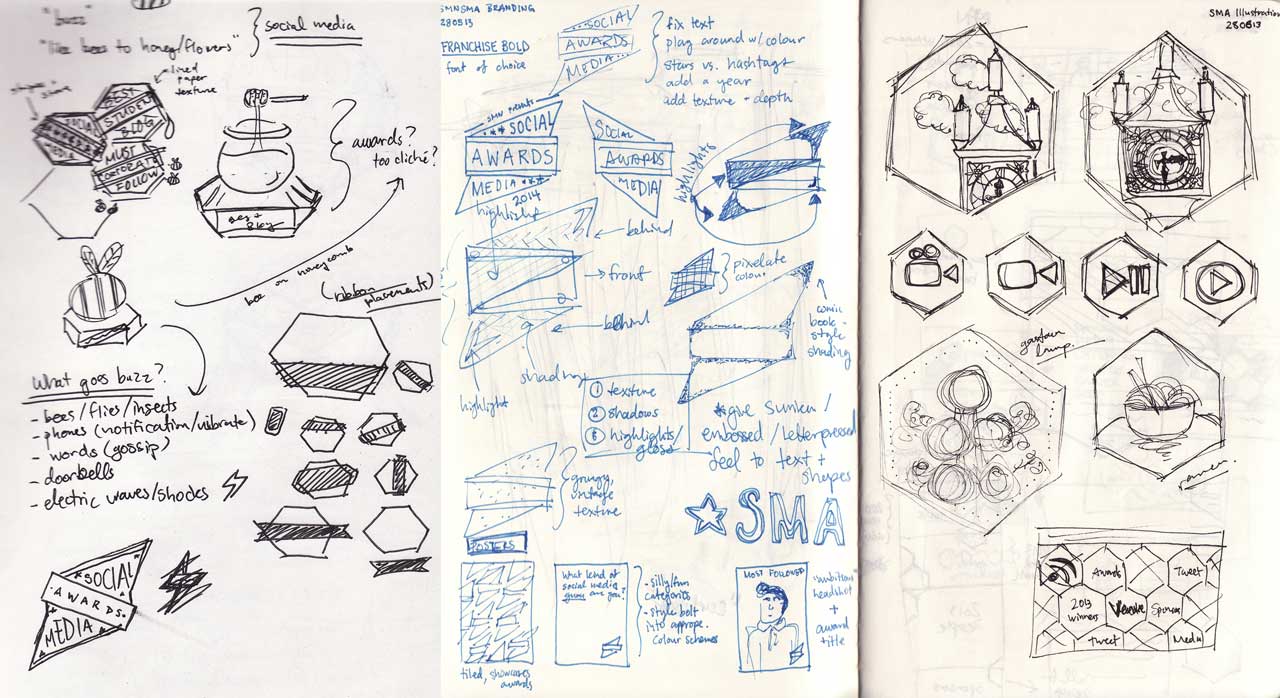 "buzz"
"like bees to honey/flowers"
social media
lined
paper
texture
BEST
STUDENT
BLOG
SOCIAL
MEDIA
MUST
CORPORATE
FOLLOW
awards?
too cliché?
bee on honeycomb
(ribbon
placements)
What goes buzz?
- bees/flies/insects
- phones (notification/vibrate)
- words (gossip)
- doorbells
- electric waves/shocks
"SOCIAL"
AWARDS
MEDIA
SMNSMA BRANDING
280513
FRANCHISE BOLD
font of choice
SOCIAL
AWARDS
MEDIA
fix text
play around w/ colour
stars vs. hashtags
add a year
add texture + depth
SMN presents
SOCIAL
AWARDS
MEDIA
2014
SOCIAL
AWARDS
MEDIA
highlights
highlight
behind
front
behind
pixelate
colour
comic
book-
style
shading
shading
highlight
1 texture
2 shadows
3 highlights/
gloss
*give sunken/
embossed/letterpressed
feel to text +
shapes
grungy,
vintage
texture
SMA
POSTERS
tiled, showcases
awards
What kind of
social media
guru are you?
- silly/fun
categories
- style bolt
into approp.
colour schemes
MOST FOLLOWED
"ambitious"
headshot
+
award
title
SMA Illustration
280513
gastown
lamp.
ramen.
Awards
Tweet
2013
winners
Venue
Sponsors
Tweet
Media